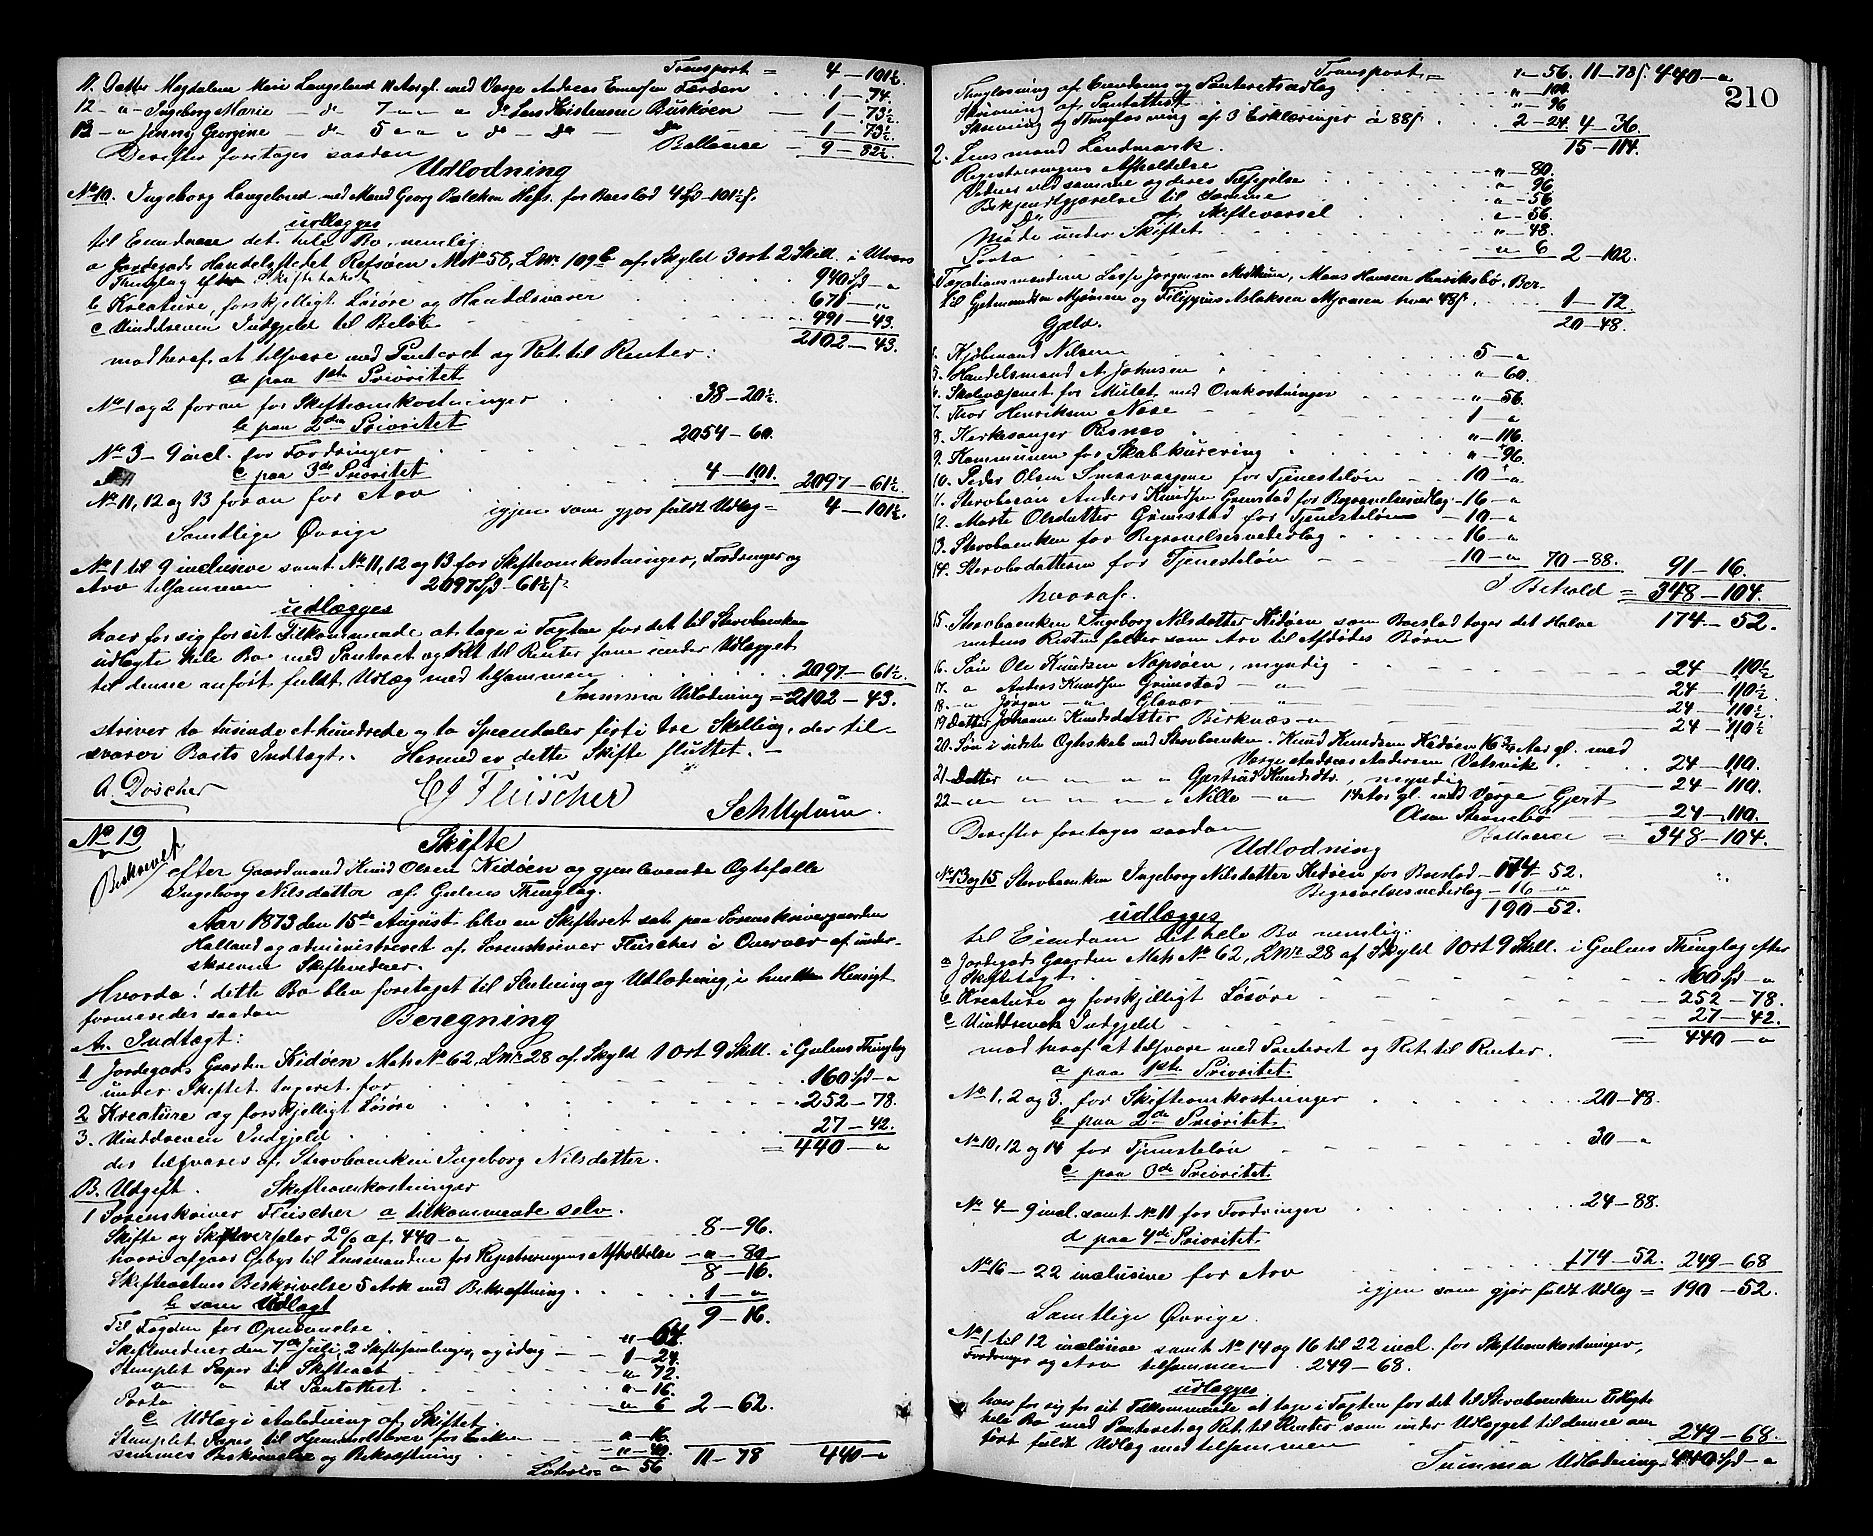 Transport = 4 – 101½
11. Datter Magdalena Marie Langeland 10 Aar gl. med Verge Andreas Lerøen . . 1 – 74.
12 – " – Ingeborg Marie – do 7 – " – " do Lars Kristensen Buskøen – 1 – 73½
13 – " Jenny Georgine – do 5 " – " " do – Do Do – 1 – 73½
Derefter foretages saadan Ballance – 9 – 82½
Udlodning
No 10. Ingeborg Langeland med Mand Georg for Boeslod 4 Spd – 101½ s.
udlægges
til Eiendom det hele Bo, nemlig:
a Jordegods Handelsstedet Refsøen M No 58, L Nr 109b af Skyld 3 ort 2 Skill. i Utvær
Thinglag efter Skiftetaxt 940 Spd – "
b Kreature, forskjelligt Løsøre og Handelsvarer . . . 671 – "
c Uinddreven Indgjeld til Beløb – – 491 – 43.
2102 – 43.
mod heraf at tilsvare med Panteret og Ret til Renter:
a paa 1ste Prioritet
No 1 og 2 foran for Skifteomkostninger . . . 38 – 20½.
b paa 2den Prioritet
No 3 – 9 incl. for Fordringer . . . 2054 – 60.
c paa 3de Prioritet
No 11, 12 og 13 foran for Arv . . . 4 – 101. 2097 – 61½
igjen som gjør fuldt Udlæg = 4 – 101½.
Samtlige Øvrige
No 1 til 9 inclusive samt No 11, 12 og 13 for Skifteomkostninger, Fordringer og
Arv tilsammen 2097 Spd – 61½ s.
udlægges
hver for sig for sit Tilkommende at tage i Fagten for det til Stervboenken
udlagte hele Bo med Panteret og Ret til Renter som under Udlægget
til denne anført fuldt Udlæg med tilsammen . . . 2097 – 61½
Summa Udlodning = 2102 – 43.
skriver to tusinde et hundrede og to Speciedaler firti tre Skilling, der til-
svarer Boets Indtægt. Hermed er dette Skifte sluttet. –
A. Doscher C J Fleischer
No 19 Skifte
Beskrevet
efter Gaardmand Knud Olsen Kidøen og gjenlevende Ægtefælle
Ingeborg Nilsdatter af Gulens Thinglag.
Aar 1873 den 15de August blev en Skifteret sat paa Sorenskrivergaarden
Halland og administreret af Sorenskriver Fleischer i Overvær af under-
skrevne Skiftevidner.
Hvorda! dette Bo blev foretaget til Slutning og Udlodning, i hvilken Hensigt
formeredes saadan Beregning
A. Indtægt:
1 Jordegods Gaarden Kidøen Mats No 62, L Nr 28 af Skyld 1 Ort 9 Skill. i Gulens Thinglag
under Skiftet taxeret for – – 160 Spd – "
2 Kreature og forskjelligt Løsøre . . . 252 – 78.
3. Uinddreven Indgjeld . . . 27 – 42.
= 440 – "
der tilsvares af Stervboenken Ingeborg Nilsdatter.
B. Udgift. Skifteomkostninger
1 Sorenskriver Fleischer a tilkommende selv.
Skifte og 2% af 440 – " 8 – 96.
hvori afgaar Gebyr til Lensmanden for Registreringens Afholdelse – " – 80
8 – 16.
Skifteactens Beskrivelse 5 Ark med Bekræftning . . . 1 – "
b som Udlagt 9 – 16.
Til Fogden for . . . " – 64.
Skiftevidner den 7de Juli, 2 Skiftesamlinger, og idag – – 1 – 24.
Stemplet Papir til Skifteact – " – 72.
" " til Pantattest . . . " – 16.
Porto – " 6 2 – 62.
c Udlæg i Anledning af Skiftet.
Stemplet Papir til Hjemmelsbrev for Enken – " – 16.
sammes Beskrivelse og Bekræftning . . . " – 40.
Lateris " 56 11 – 78 440 – "
210
Transport. = " – 56. 11 – 78 s 440 – "
Thinglæsning af Eiendoms og Panteretsudlæg . . . " – 108.
Skrivning af Pantattest . . . " – 96
Skrivning og Thinglæsning af 3 Erklæringer à 88 s. . . . 2 – 24. 4 – 36.
2. Lensmand Landmark. 15 – 114.
Registreringens Afholdelse " – 80.
Vidner ved samme og deres Tilsigelse . . . " – 96
Bekjendtgjørelse til Samme . . . " – 56
Do af Skiftevarsel . . . " – 56.
Møde under Skiftet – – " – 48.
Porto – – " 6 2 – 102.
3. Taxationsmændene Lasse Jørgensen, Mons Hansen Henriksbø, Ber-
til Gjetmundsen Mjømen og Filippus Aslaksen Mjømen hver 48 s. . . . 1 – 72.
Gjeld. 20 – 48.
4. Kjøbmand Nilsen . . . 5 – "
5. Handelsmand A. Johnsen . . . " – 60.
6. Skolevæsenet for Mulct med Omkostninger . . . " – 56.
7. Thor Henriksen Nese – – 1 – "
8. Kirkesanger Risnes . . . " – 116.
9. Kommunen for Skabkurering . . . " – 96.
10. Peder Olsen for Tjenesteløn – – 10 – "
11. Stervboesøn Anders Knudsen Grimstad for Begravelsesudlæg – 16 – "
12. Marte Olsdatter Grimstad for Tjenesteløn – 10 – "
13. Stervboenken for Begravelsesvederlag . . . 16 – "
14. Stervbodatteren for Tjenesteløn – – 10 – " 70 – 88. 91 – 16.
hvoraf. I Behold = 348 – 104.
15. Stervboenken Ingeborg Nilsdatter Kidøen som Boeslod tager det Halve 174 – 52.
medens Resten falder som Arv til Afdødes Børn
16. Søn Ole Knudsen Napsøen, myndig – – 24 – 110½
17. " Anders Knudsen Grimstad – " – 24 – 110½
18. – " Jørgen – " – Glavær " – 24 – 110½
19. Datter Johanne Knudsdatter Birknæs – " – 24 – 110½
20. Søn i sidste Ægteskab med Stervboenken. Knud Knudsen Kidøen 16¾ Aar gl. med
Verge Andreas Andersen Vatsvik . . . 24 – 110.
21. Datter " " " " Gjertrud Knudsdtr., myndig – 24 – 110.
22. – " – " " " – " Nille – " – 14 Aar gl. med Verge Gjert
Olsen 24 – 110.
Derefter foretages saadan Ballance = 348 – 104.
Udlodning
No 13 og 15 Stervboenken Ingeborg Nilsdatter Kidøen for Boeslod – 174 – 52.
Begravelsesvederlag – 16 – "
udlægges 190 – 52.
til Eiendom det hele Bo nemlig:
a Jordegods Gaarden Mats No 62, L Nr 28 af Skyld 1 Ort 9 Skill. i Gulens Thinglag efter
Skiftetaxt 160 Spd – "
b Kreature og forskjelligt Løsøre – – 252 – 78.
c Uinddreven Indgjeld . . . 27 – 42.
= 440 – "
mod heraf at tilsvare med Panteret og Ret til Renter.
a paa 1ste Prioritet.
No 1, 2 og 3. for Skifteomkostninger . . . 20 – 48.
b paa 2den Prioritet.
No 10, 12 og 14 for Tjenesteløn . . . 30 – "
c paa 3de Prioritet.
No 4 – 9 incl. samt No 11 for Fordringer . . . 24 – 88.
d paa 4de Prioritet.
No 16 – 22 inclusive for Arv . . . 174 – 52. 249 – 68
igjen som gjør fuldt Udlæg = 190 – 52.
Samtlige Øvrige.
No 1 til 12 inclusive samt No 14 og 16 til 22 incl. for Skifteomkostninger,
Fordringer og Arv tilsammen . 249 – 68.
udlægges
hver for sig for sit Tilkommende at tage i Fagten for det til Stervboenken Udlagte
hele Bo med Panteret og Ret til Renter som under Udlægget til denne an-
ført fuldt Udlæg med tilsammen . . . 249 – 68.
Summa Udlodning 440 Spd – "